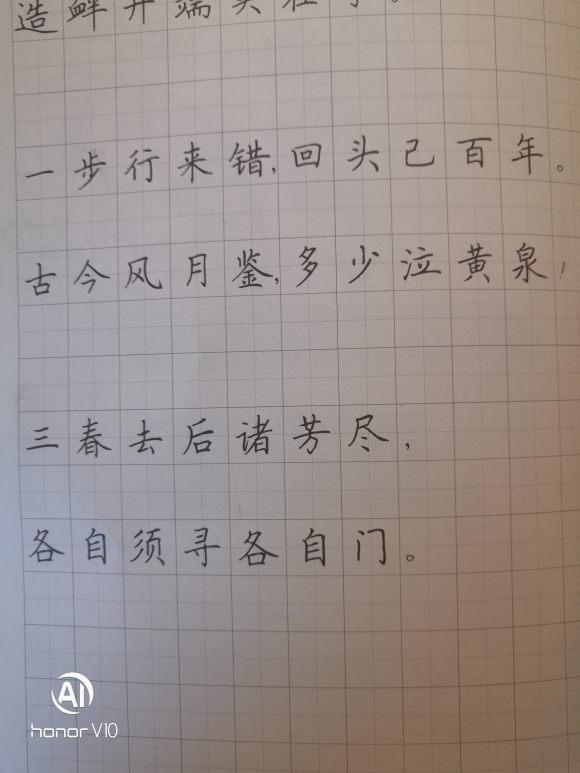 造衅开端实在宁。
一步行来错,回头已百年。
古今风月鉴,多少泣黄泉!
三春去后诸芳尽,
各自须寻各自门。
AI
honor V10